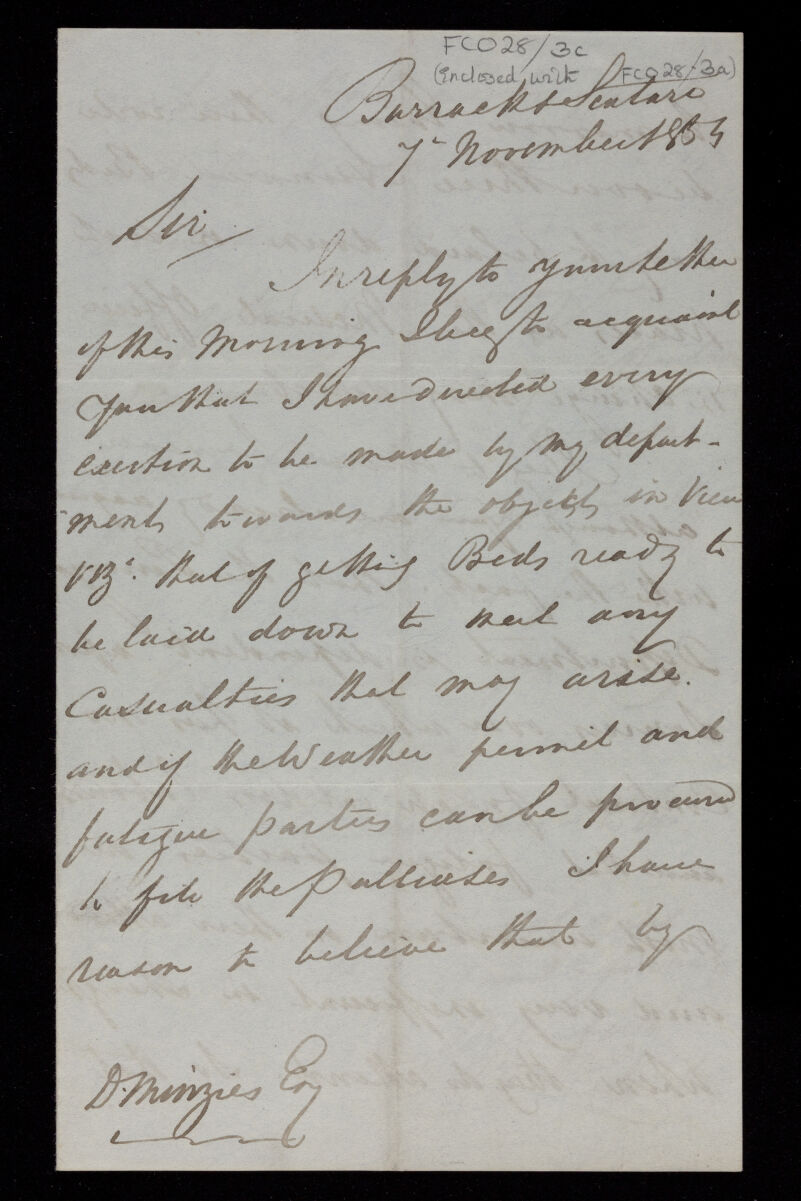 FCO28/3c
(inclosed with FCO28/3a)
Barracks Scutari
7th November 1854
Sir
In reply to your letter
of this Morning I beg to acquaint
you that I have directed every
exertion to be made by my depart-
ments towards the objects in View
Vizt. that of getting Beds ready to
be laid down to meet any
Casualties that may arise.
and if the Weather permit and
fatigue parties can be procured
to fill the Palliasses I have
reason to believe that by
D. Minzies Esq